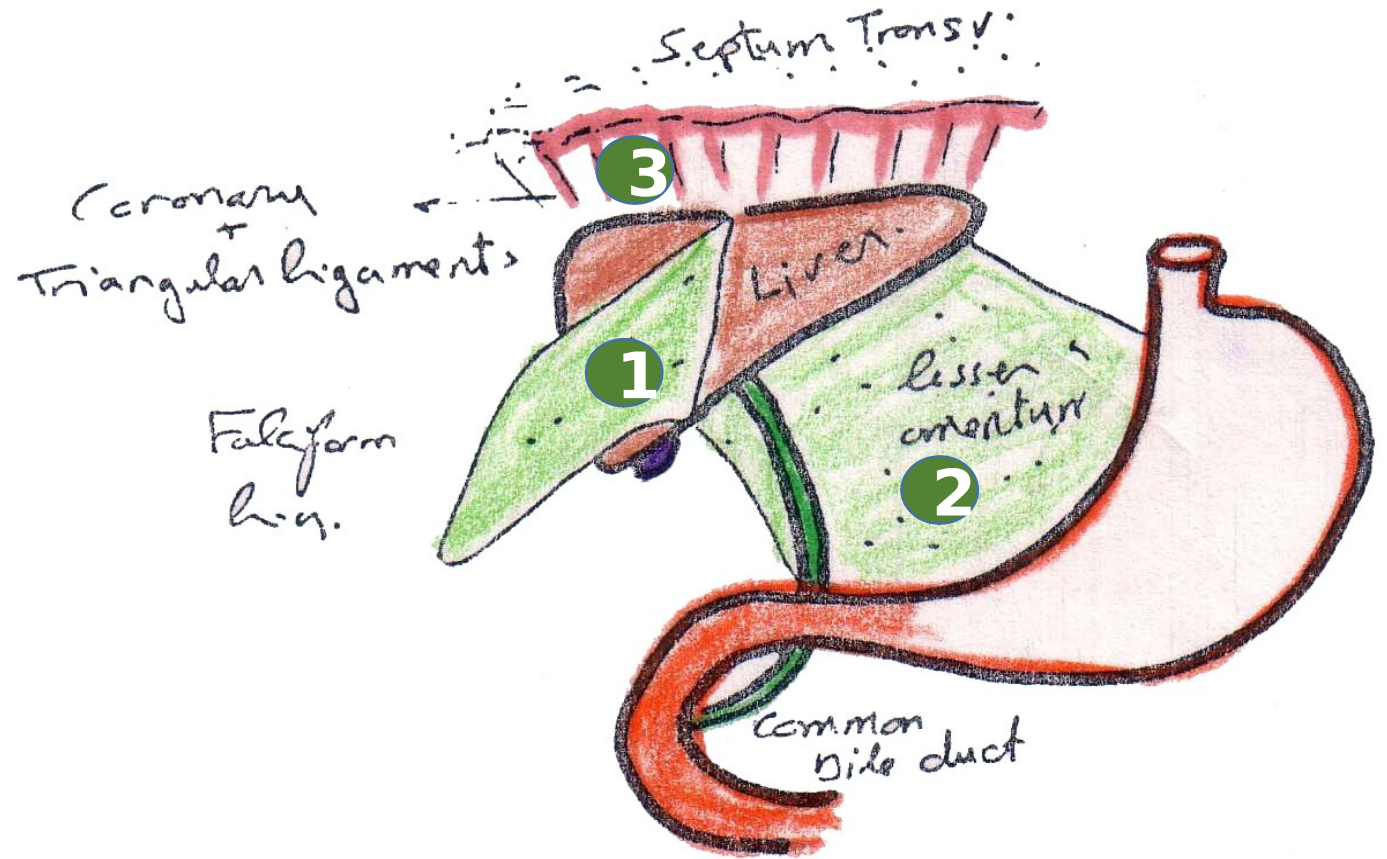 Septum Transv.
3
Coronary
+
Triangular ligaments
Liver.
1
lesser
omentum
Falciform
lig.
2
Common
bile duct